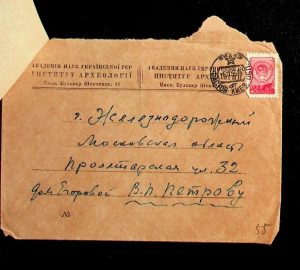 АКАДЕМІЯ НАУК УКРАЇНСЬКОЇ РСР
ІНСТИТУТ АРХЕОЛОГІЇ
Київ, Бульвар Шевченка, 14
АКАДЕМИЯ НАУК УКРАИНСКОЙ ССР
ИНСТИТУТ АРХЕОЛОГИИ
Киев, Бульвар Шевченко, 14
г. Железнодорожный
Московская область
Пролетарская ул. 32
дом Егоровой В.П. Петрову
№
55